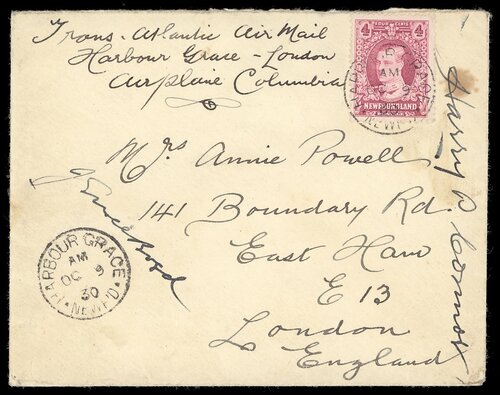 Trans-Atlantic Air Mail
Harbour Grace - London
Airplane Columbia
4 4
NEWFOUNDLAND
HARBOUR GRACE
AM
OC 9
NEWF'D
Mrs Annie Powell
141 Boundary Rd.
East Ham
E 13
London
England
J Errol Boyd
Harry P Connor
HARBOUR GRACE
AM
OC 9
30
NEWF'D